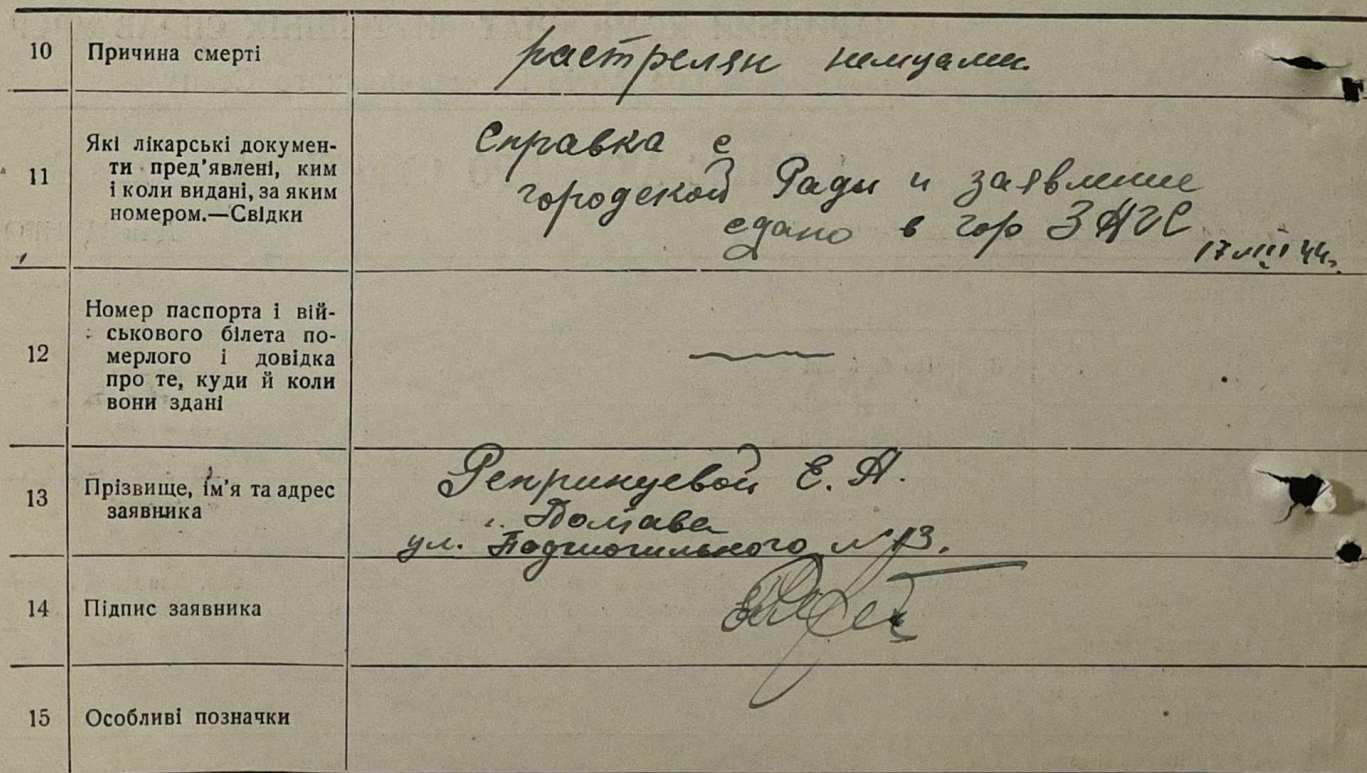 10 Причина смерті растрелян немцами
11 Які лікарські докумен-
ти пред'явлені, ким
і коли видані, за яким
номером.—Свідки
Справка с
городской Рады и заявление
сдано в гор ЗАГС
17 VIII 44г.
12 Номер паспорта і вій-
ськового білета по-
мерлого і довідка
про те, куди й коли
вони здані
13 Прізвище, ім'я та адрес
заявника
Репринцевой Е. А.
г. Полтава
ул. Подмогильного № 13.
14 Підпис заявника
15 Особливі позначки